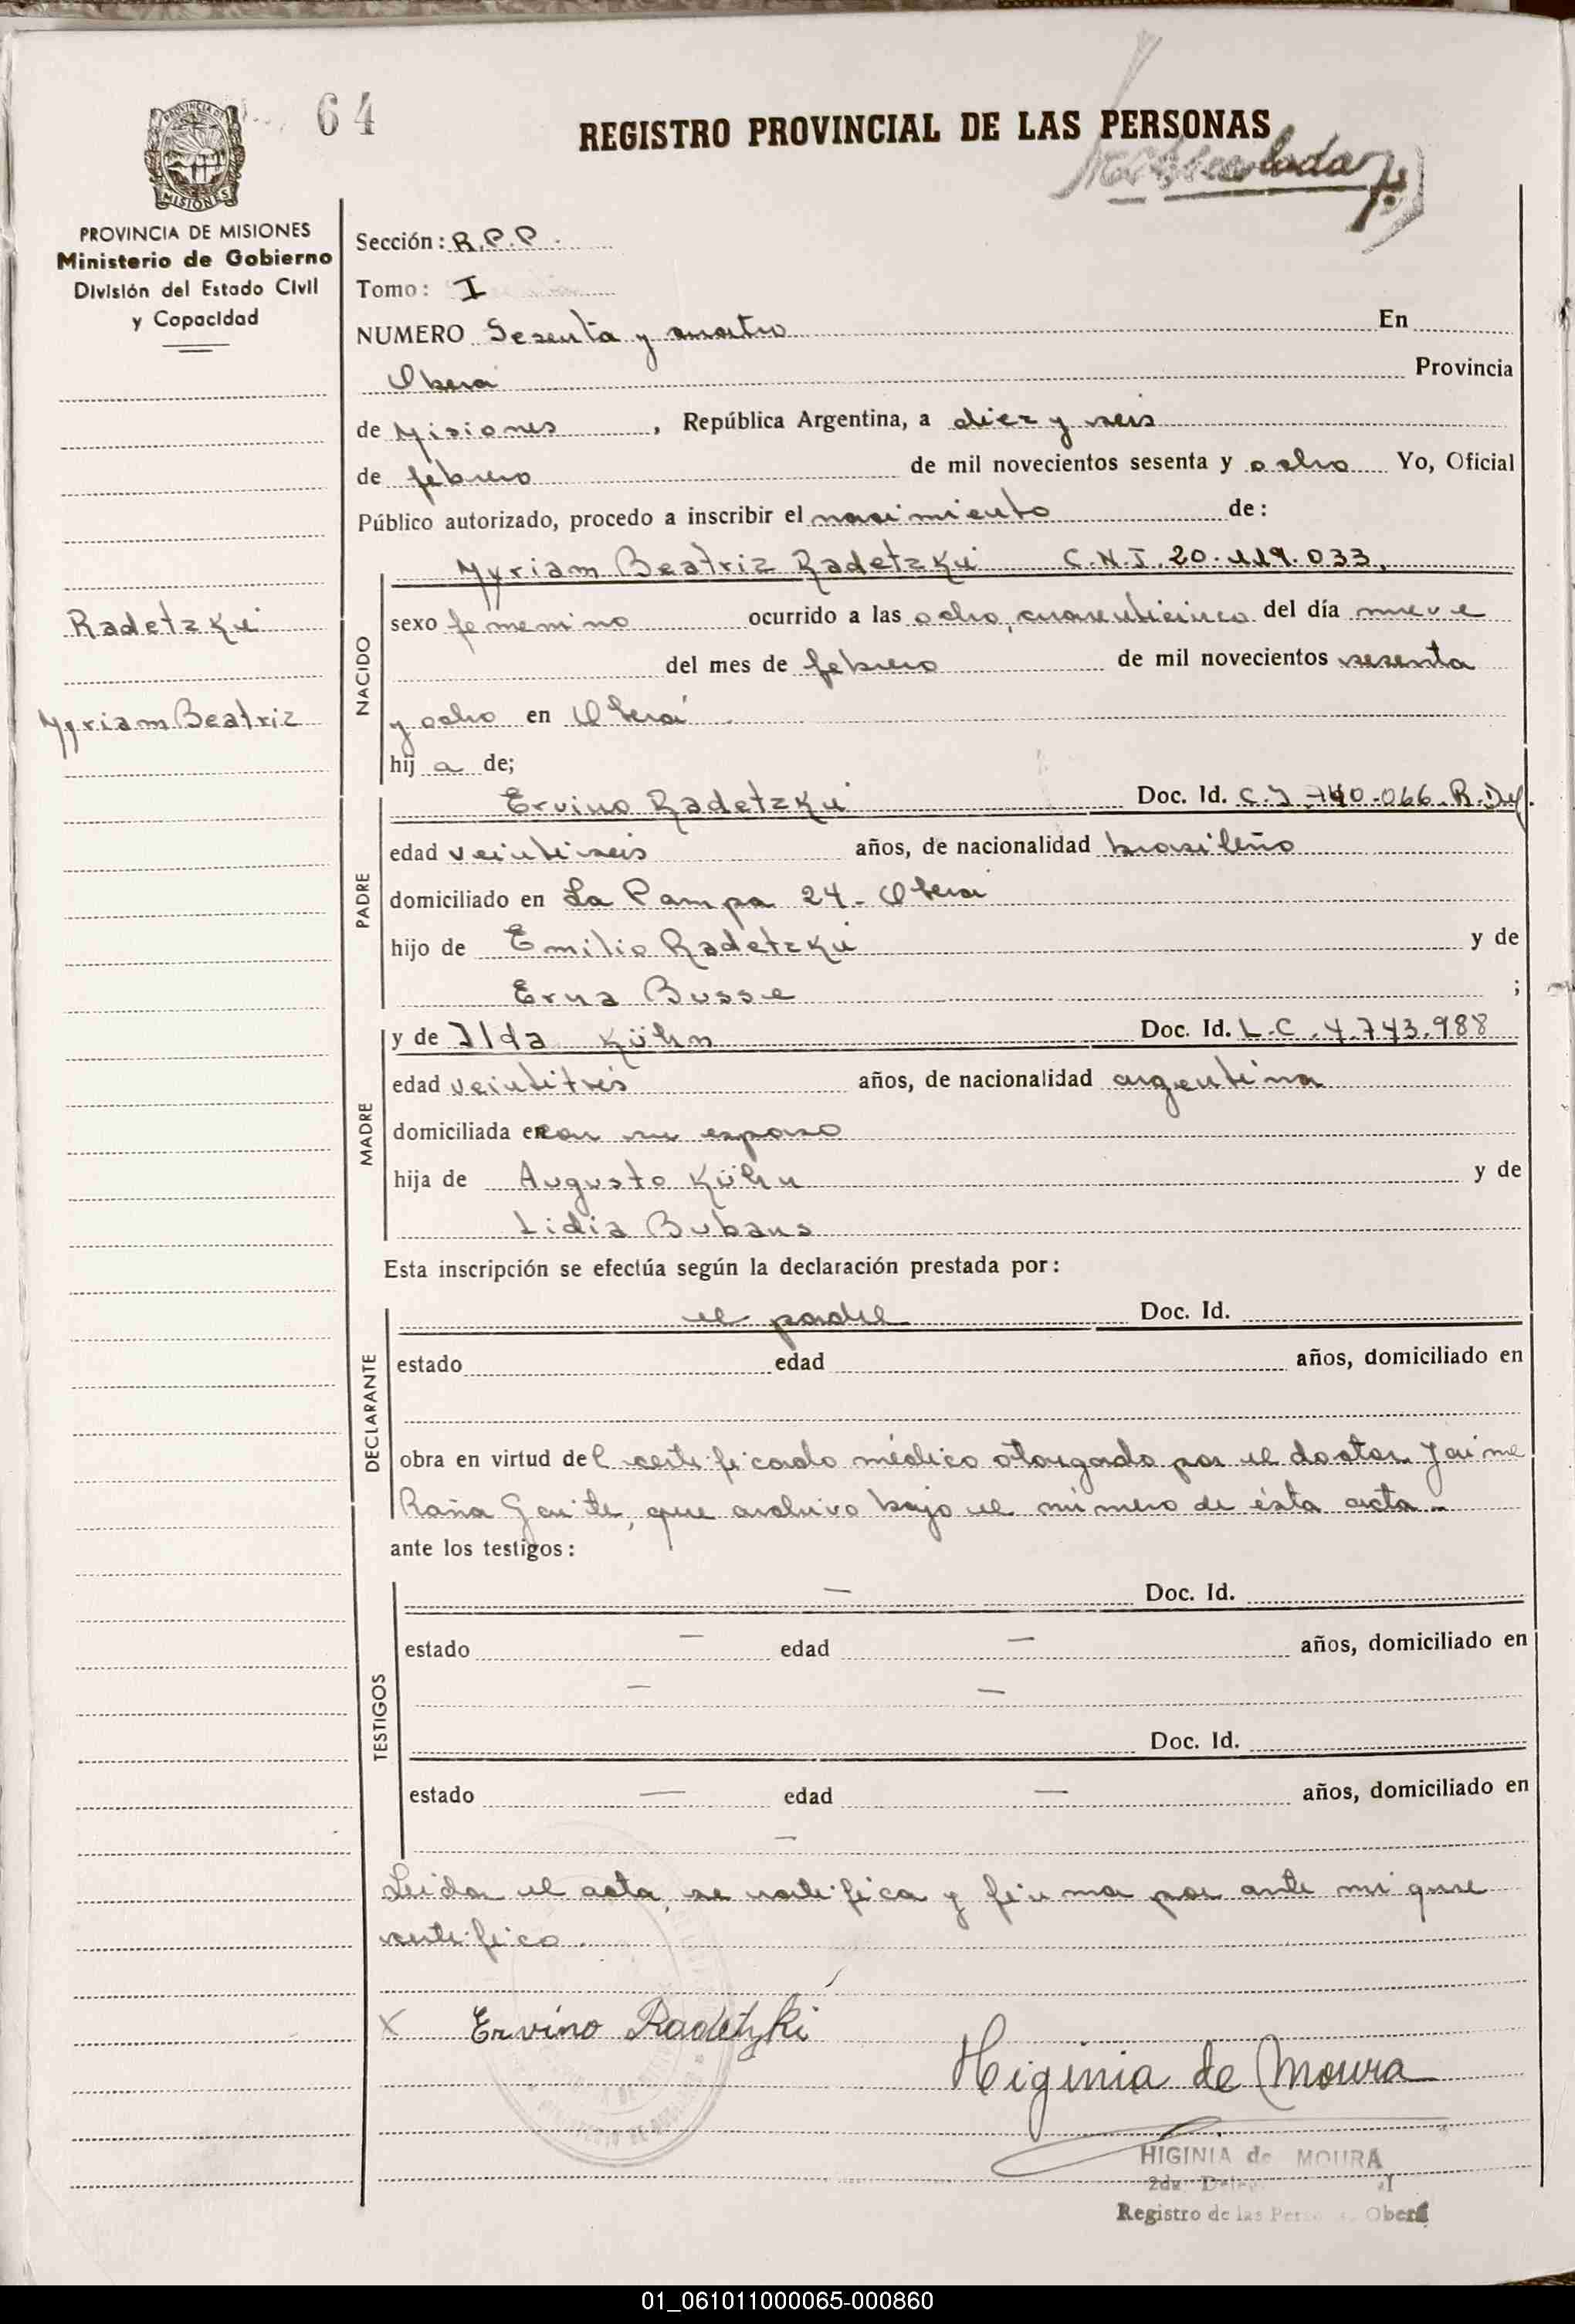 64
REGISTRO PROVINCIAL DE LAS PERSONAS
PROVINCIA DE MISIONES
Ministerio de Gobierno
División del Estado Civil
y Capacidad
Sección: R.P.P.
Tomo: I
NUMERO Sesenta y cuatro En
Oberá Provincia
de Misiones , República Argentina, a diez y seis
de febrero de mil novecientos sesenta y ocho Yo, Oficial
Público autorizado, procedo a inscribir el nacimiento de:
Myriam Beatriz Radetzki C.N.I. 20.119.033,
Radetzki
Myriam Beatriz
NACIDO
sexo femenino ocurrido a las ocho, cuarenticinco del día nueve
del mes de febrero de mil novecientos sesenta
y ocho en Oberá.
hij a de;
PADRE
Ervino Radetzki Doc. Id. C.I. 740.066. R.
edad veintiseis años, de nacionalidad brasileño
domiciliado en La Pampa 24 - Oberá
hijo de Emilio Radetzki y de
Erna Busse ;
MADRE
y de Ilda Kühn Doc. Id. L.C. 4.743.988
edad veintitrés años, de nacionalidad argentina
domiciliada en con su esposo
hija de Augusto Kühn y de
Lidia Bubans
Esta inscripción se efectúa según la declaración prestada por:
DECLARANTE
el padre Doc. Id.
estado edad años, domiciliado en
obra en virtud del certificado médico otorgado por el doctor Jaime
Raña Gaite, que archivo bajo el número de ésta acta -
ante los testigos:
TESTIGOS
— Doc. Id.
estado — edad — años, domiciliado en
— —
Doc. Id.
estado — edad — años, domiciliado en
—
Leida el acta, se ratifica y firma por ante mi que
certifico.
x Ervino Radetzki
Higinia de Moura
HIGINIA de MOURA
2da.
Registro de las Oberá
01_061011000065-000860